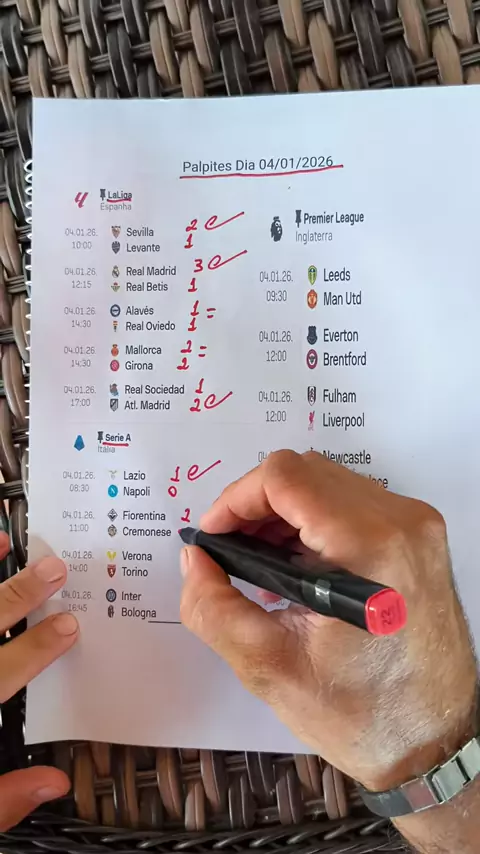 Palpites Dia 04/01/2026
4 LaLiga
Espanha
04.01.26. Sevilla 2
10:00 Levante 1
04.01.26. Real Madrid 3
12:15 Real Betis 1
04.01.26. Alavés 1 =
14:30 Real Oviedo 1
04.01.26. Mallorca 2 =
14:30 Girona 2
04.01.26. Real Sociedad 1
17:00 Atl. Madrid 2
Serie A
Itália
04.01.26. Lazio 1
08:30 Napoli 0
04.01.26. Fiorentina 2
11:00 Cremonese
04.01.26. Verona
14:00 Torino
04.01.26. Inter
16:45 Bologna
Premier League
Inglaterra
04.01.26. Leeds
09:30 Man Utd
04.01.26. Everton
12:00 Brentford
04.01.26. Fulham
12:00 Liverpool
Newcastle
22